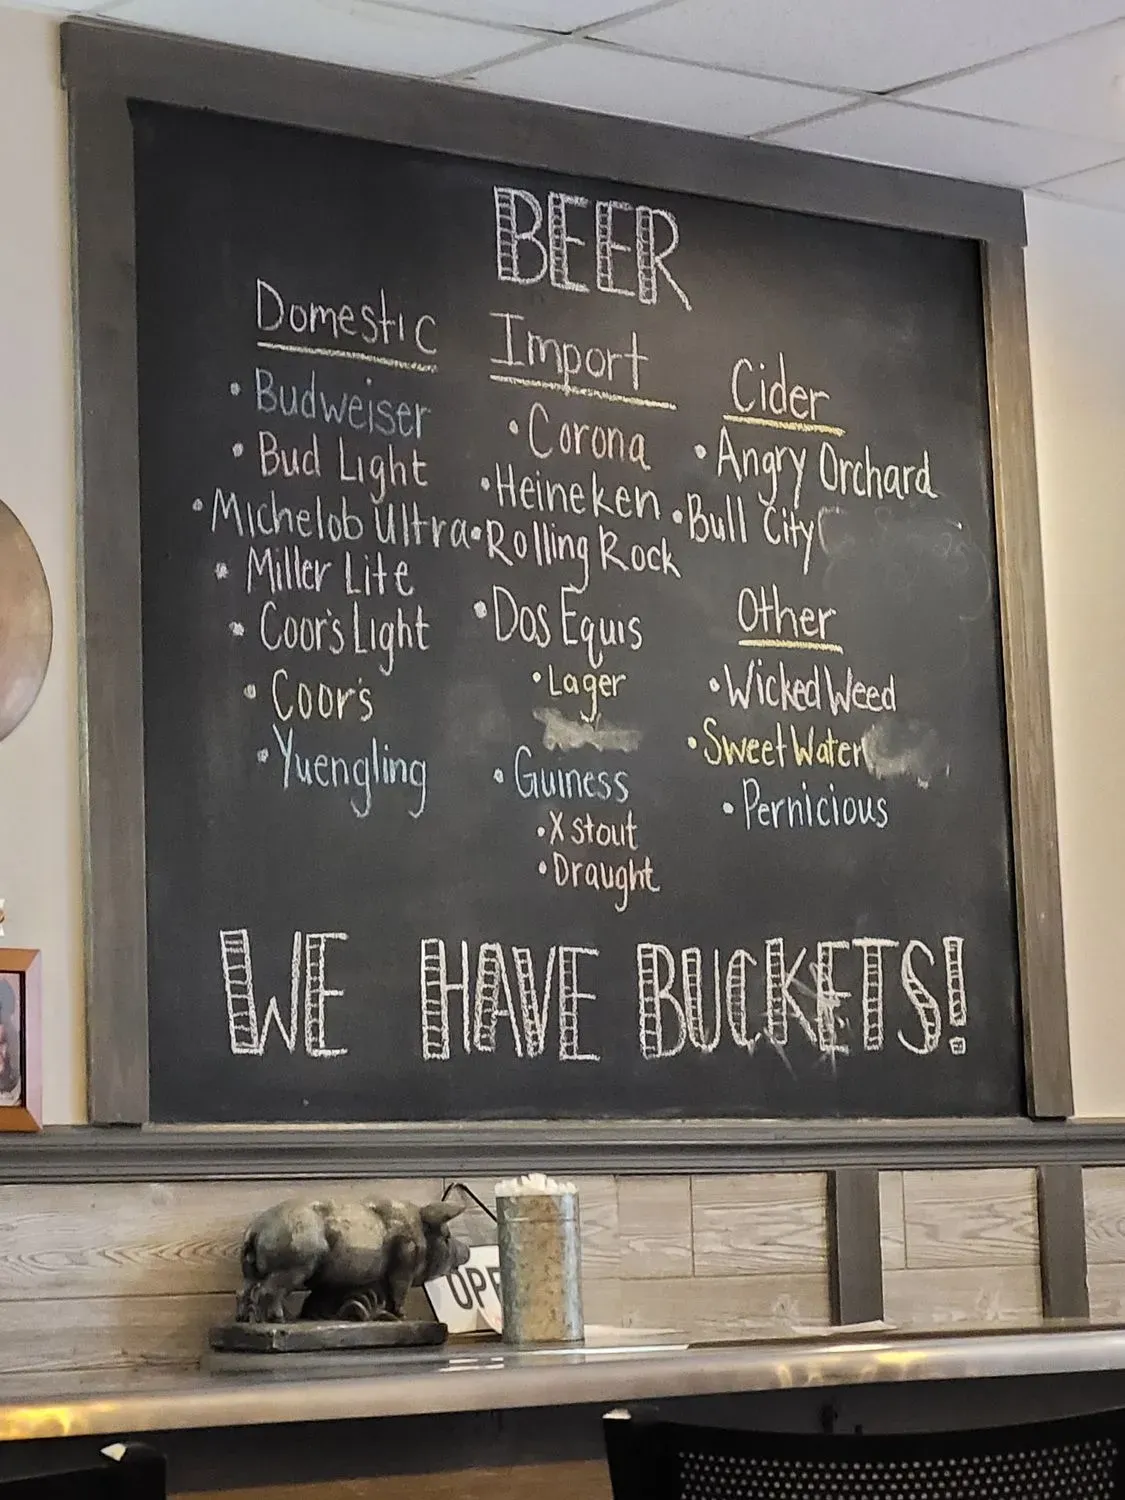 BEER
Domestic
• Budweiser
• Bud Light
• Michelob Ultra
• Miller Lite
• Coor's Light
• Coor's
• Yuengling
Import
• Corona
• Heineken
• Rolling Rock
• Dos Equis
• Lager
• Guiness
• X stout
• Draught
Cider
• Angry Orchard
• Bull City
Other
• Wicked Weed
• Sweet Water
• Pernicious
WE HAVE BUCKETS!